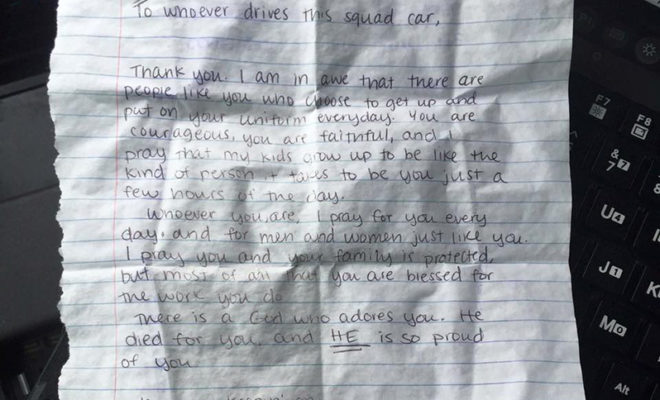 To whoever drives this squad car,
Thank you. I am in awe that there are
people like you who choose to get up and
put on your uniform everyday. You are
courageous, you are faithful, and I
pray that my kids grow up to be like the
kind of person it takes to be you just a
few hours of the day.
Whoever you are, I pray for you every
day, and for men and women just like you.
I pray you and your family is protected,
but most of all that you are blessed for
the work you do
There is a God who adores you. He
died for you, and HE is so proud
of you.
F7
F8
&
7 7
U 4
J 1
K
M 0
Alt